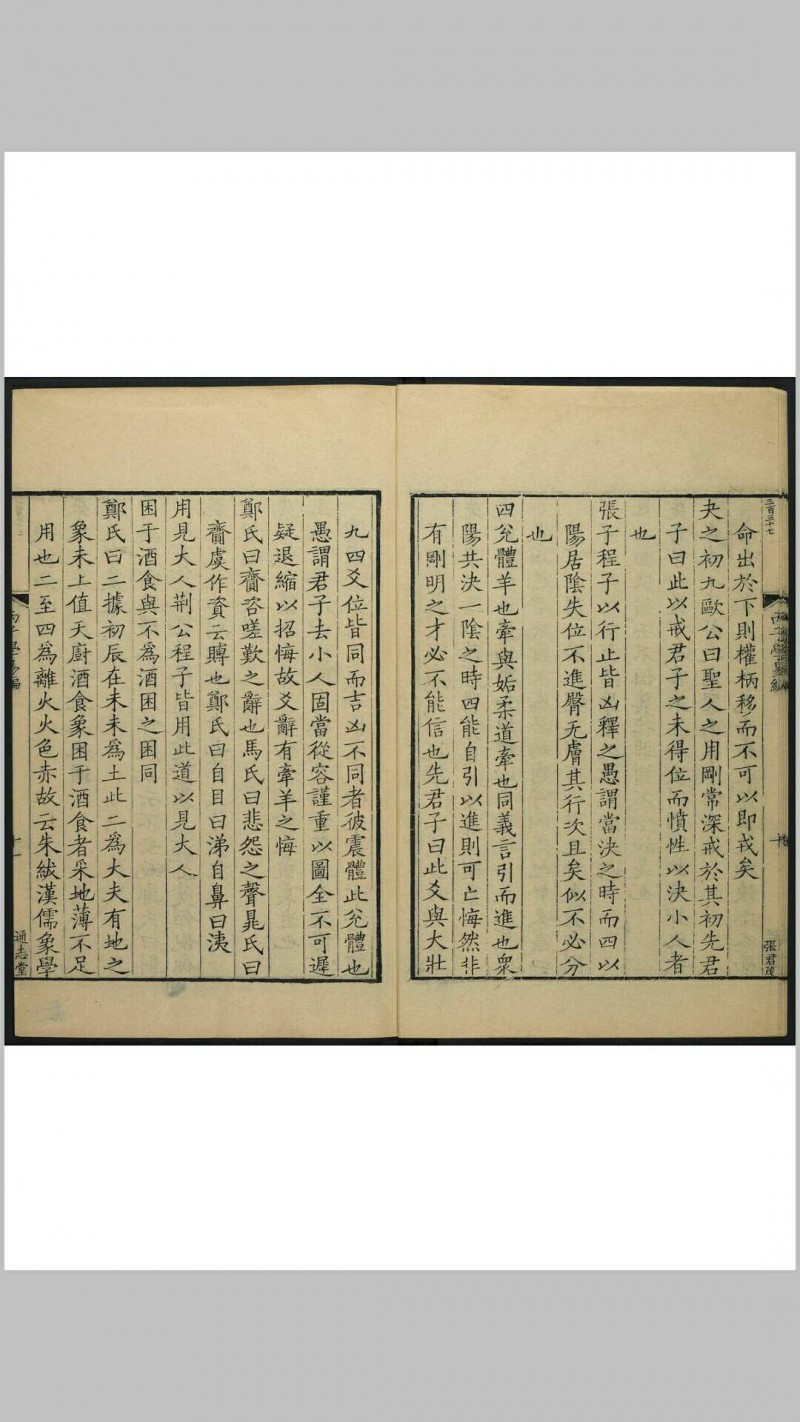 三百三十七
張君茂
命出於下則權柄移而不可以即戎矣
夬之初九歐公曰聖人之用剛常深戒於其初先君
子曰此以戒君子之未得位而憤性以決小人者
也
張子程子以行止皆凶釋之愚謂當決之時而四以
陽居陰失位不進臀无膚其行次且矣似不必分
也
四兊體羊也牽與姤柔道牽也同義言引而進也衆
陽共決一陰之時四能自引以進則可亡悔然非
有剛明之才必不能信也先君子曰此爻與大壯
九四爻位皆同而吉凶不同者彼震體此兊體也
愚謂君子去小人固當從容謹重以圖全不可遲
疑退縮以招悔故爻辭有牽羊之悔
鄭氏曰齎咨嗟歎之辭也馬氏曰悲怨之聲晁氏曰
齎虞作資云賻也鄭氏曰自目曰涕自鼻曰洟
用見大人荆公程子皆用此道以見大人
困于酒食與不爲酒困之困同
鄭氏曰二據初辰在未未爲土此二爲大夫有地之
象未上值天廚酒食象困于酒食者采地薄不足
用也二至四爲離火火色赤故云朱紱漢儒象學
丙子學易編
十一
通志堂